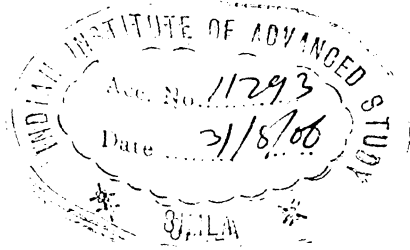 INDIAN INSTITUTE OF ADVANCED STUDY
Acc. No. 11293
Date
SIMLA